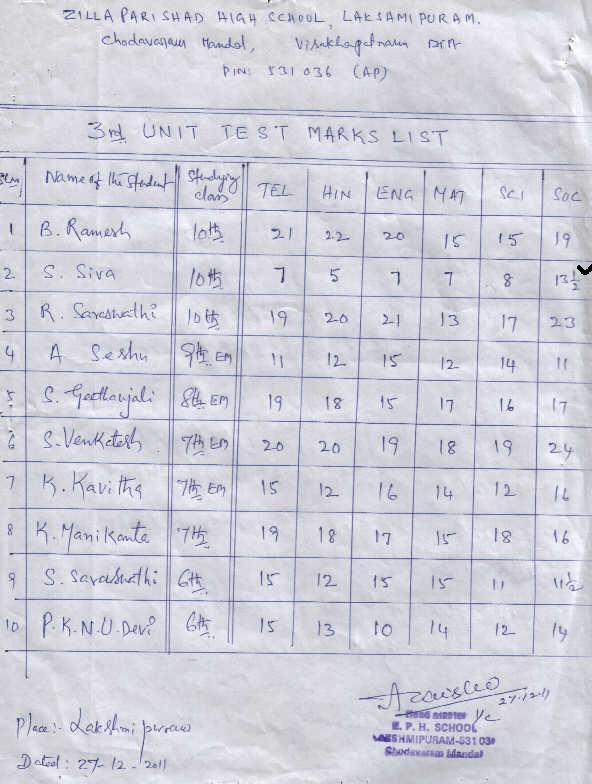 ZILLA PARISHAD HIGH SCHOOL, LAKSAMIPURAM.
Chodavaram Mandal, Visakhapatnam Dist
PIN: 531036 (AP)
3rd UNIT TEST MARKS LIST
Name of the Student Studying class TEL HIN ENG MAT SCI SOC
1 B. Ramesh 10th 21 22 20 15 15 19
2 S. Siva 10th 7 5 7 7 8 13½
3 R. Saraswathi 10th 19 20 21 13 17 23
4 A Seshu 9th EM 11 12 15 12 14 11
5 S. Geethanjali 8th EM 19 18 15 17 16 17
6 S. Venkatesh 7th EM 20 20 19 18 19 24
7 K. Kavitha 7th EM 15 12 16 14 12 16
8 K. Manikanta 7th 19 18 17 15 18 16
9 S. Saraswathi 6th 15 12 15 15 11 11½
10 P.K.N.U.Devi 6th 15 13 10 14 12 14
27-12-11
Head Master I/c
Z. P. H. SCHOOL
LAKSHMIPURAM-531 036
Chodavaram Mandal
Place:- Lakshmipuram
Dated: 27-12-2011